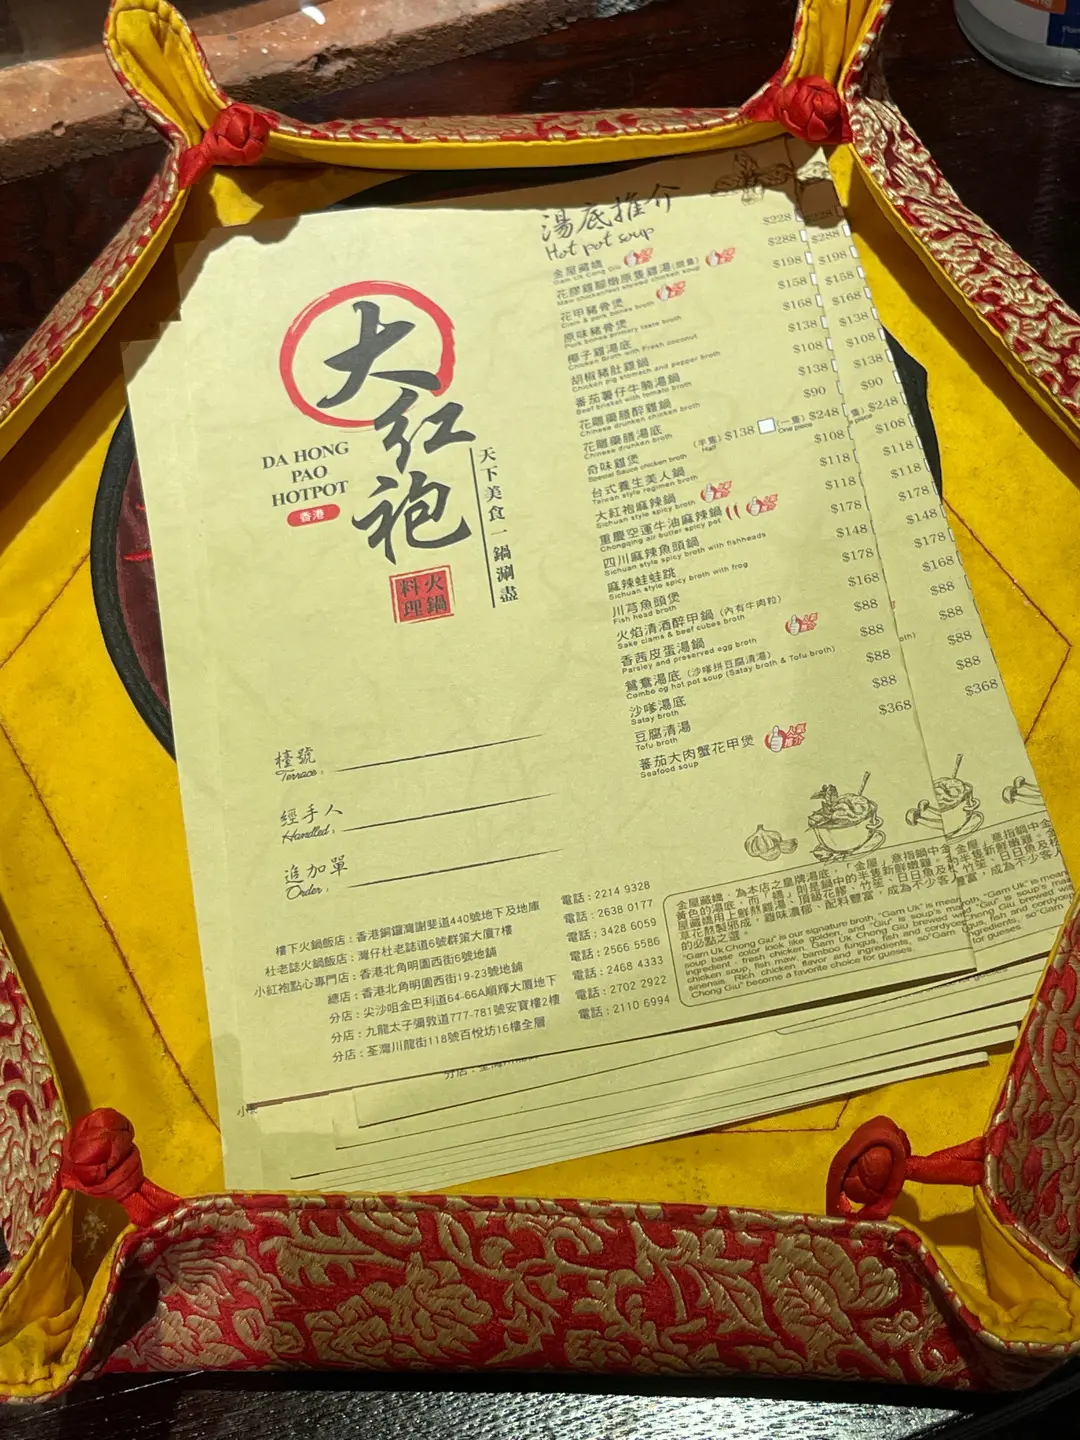 大红袍
DA HONG
PAO
HOTPOT
香港
天下美食一鍋涮盡
火鍋
料理
湯底推介
Hot pot soup
金屋藏嬌 $228
Gam Uk Cong Giu
花膠雞腳燉原隻雞湯(限量) $288
Maw chicken feet stewed chicken soup
花甲豬骨煲 $198
Clam & pork bones broth
原味豬骨煲 $158
Pork bones primary taste broth
椰子雞湯底 $168
Chicken Broth with Fresh coconut
胡椒豬肚雞鍋 $138
Chicken pig stomach and pepper broth
番茄薯仔牛腩湯鍋 $108
Beef brisket with tomato broth
花雕藥膳醉雞鍋 $138
Chinese drunken chicken broth
花雕藥膳湯底 $90
Chinese drunken broth
奇味雞煲 (半隻) $138 (一隻) $248
Special Sauce chicken broth Half One piece
台式養生美人鍋 $108
Taiwan style regimen broth
大紅袍麻辣鍋 $118
Sichuan style spicy broth
重慶空運牛油麻辣鍋 $118
Chongqing air butter spicy pot
四川麻辣魚頭鍋 $178
Sichuan style spicy broth with fishheads
麻辣蛙蛙跳 $148
Sichuan style spicy broth with frog
川芎魚頭煲 $178
Fish head broth
火焰清酒醉甲鍋 (內有牛肉粒) $168
Sake clams & beef cubes broth
香茜皮蛋湯鍋 $88
Parsley and preserved egg broth
鴛鴦湯底 (沙嗲拼豆腐清湯) $88
Combo og hot pot soup (Satay broth & Tofu broth)
沙嗲湯底 $88
Satay broth
豆腐清湯 $88
Tofu broth
蕃茄大肉蟹花甲煲 $368
Seafood soup
人氣推介
檯號
Terrace:
經手人
Handled:
追加單
Order:
樓下火鍋飯店：香港銅鑼灣謝斐道440號地下及地庫 電話：2214 9328
杜老誌火鍋飯店：灣仔杜老誌道6號群策大廈7樓 電話：2638 0177
小紅袍點心專門店：香港北角明園西街6號地舖 電話：3428 6059
總店：香港北角明園西街19-23號地舖 電話：2566 5586
分店：尖沙咀金巴利道64-66A順輝大廈地下 電話：2468 4333
分店：九龍太子彌敦道777-781號安寶樓2樓 電話：2702 2922
分店：荃灣川龍街118號百悅坊16樓全層 電話：2110 6994
金屋藏嬌，為本店之皇牌湯底，「金屋」意指鍋中金
黃色的湯底，而「嬌」則是鍋中的半隻新鮮嫩雞。金
屋藏嬌用上鮮熬雞湯、頂級花膠、竹笙、日日魚及杞
草花熬製而成，雞味濃郁，配料豐富，成為不少客人
的必點之選。
"Gam Uk Chong Giu" is our signature broth, "Gam Uk" is meant
soup base color look like golden, and "Giu" is soup's main
ingredient - fresh chicken. Gam Uk Chong Giu brewed with
chicken soup, fish maw, bamboo fungus, fish and cordyceps
sinensis. Rich chicken flavor and ingredients, so"Gam Uk
Chong Giu" become a favorite choice for gueses.